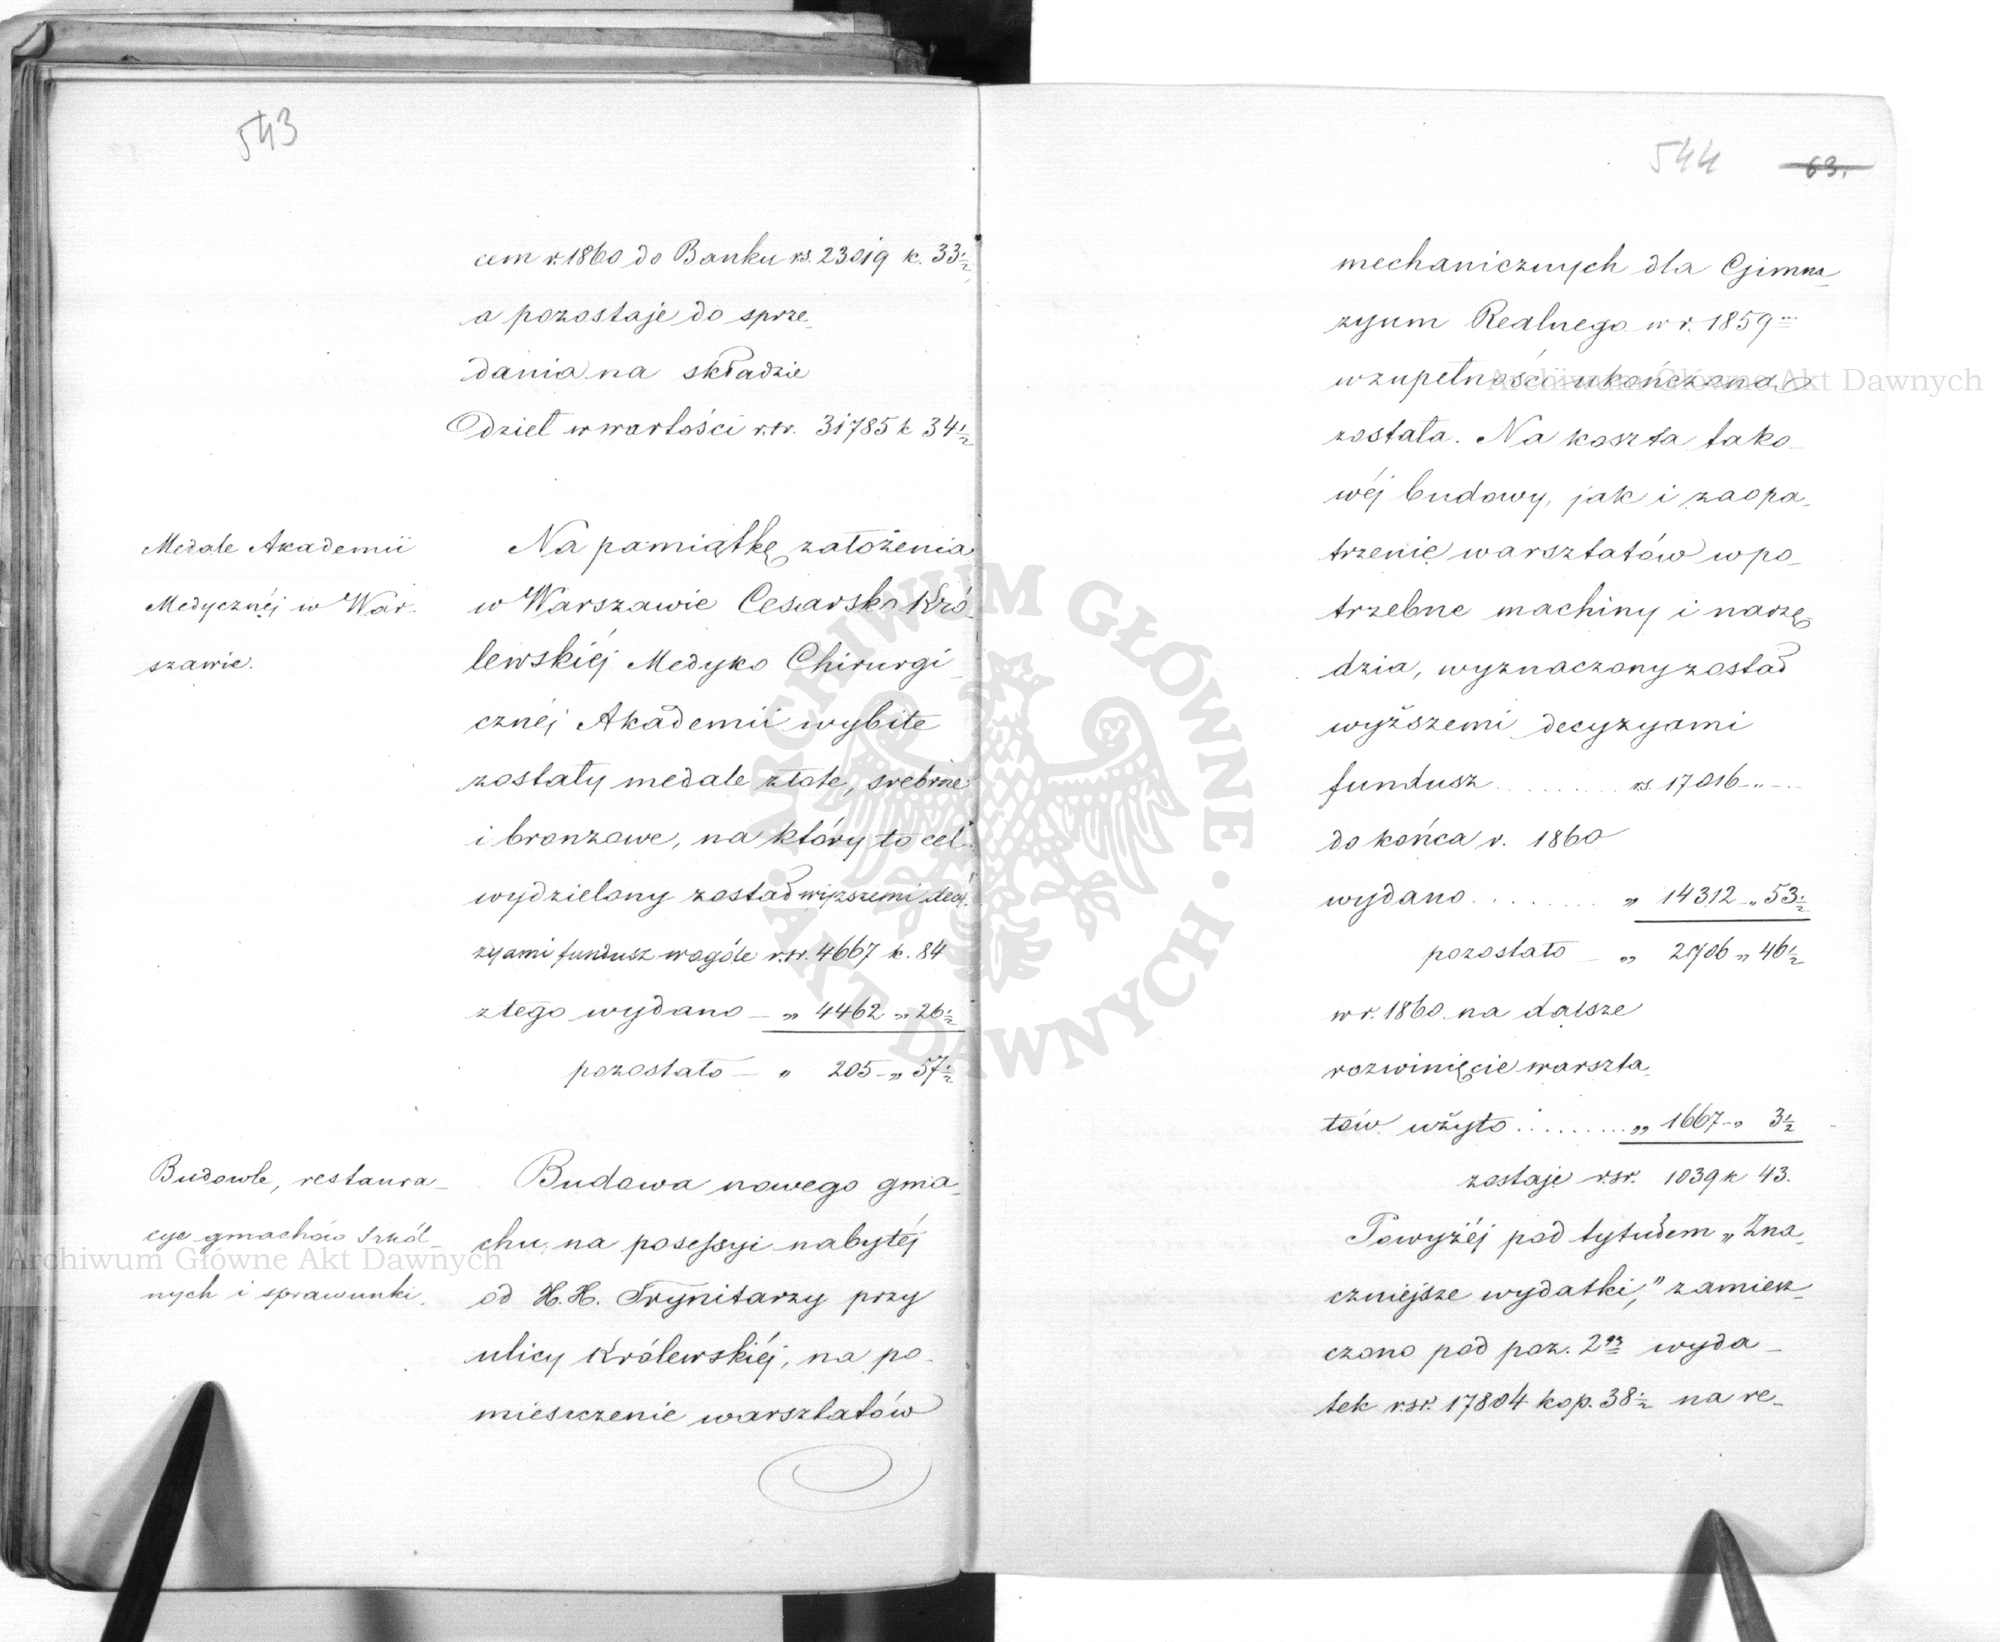 543
cem r. 1860 do Banku rs. 23019 k. 33½
a pozostaje do sprze-
dania na składzie
Dzieł w wartości r.sr. 31785 k 34½
Medale Akademii
Medycznéj w War-
szawie.
Na pamiątkę założenia
w Warszawie Cesarsko Kró-
lewskiéj Medyko Chirurgi-
cznéj Akademii wybite
zostały medale złote, srebrne
i bronzowe, na który to cel
wydzielony został wyższemi decy-
zyami fundusz wogóle r.sr. 4667 k. 84
z tego wydano — „ 4462 „ 26½
pozostało — „ 205 – „ 57½
Budowle, restaura-
cye gmachów szkól-
nych i sprawunki.
Budowa nowego gma-
chu, na posessyi nabytéj
od H.H. Trynitarzy przy
ulicy Królewskiéj, na po-
mieszczenie warsztatów
544 63.
mechanicznych dla Gimna-
zyum Realnego w r. 1859 m
w zupełności ukończona
została. Na koszta tako-
wéj budowy, jak i zaopa-
trzenie warsztatów w po-
trzebne machiny i narzę-
dzia, wyznaczony został
wyższemi decyzyami
fundusz . . . . . . . . rs. 17016 – „ –
do końca r. 1860
wydano . . . . . . . . „ 14312 „ 53½
pozostało — „ 2706 „ 46½
w r. 1860 na dalsze
rozwinięcie warszta-
tów użyto . . . . . . . . „ 1667 – „ 3½
zostaje r.sr. 1039 k 43.
Powyżéj pod tytułem „Zna-
czniejsze wydatki," zamiesz-
czono pod poz. 2gą wyda-
tek r.sr. 17804 kop. 38½ na re-
Archiwum Główne Akt Dawnych
Archiwum Główne Akt Dawnych
ARCHIWUM GŁÓWNE · AKT DAWNYCH ·